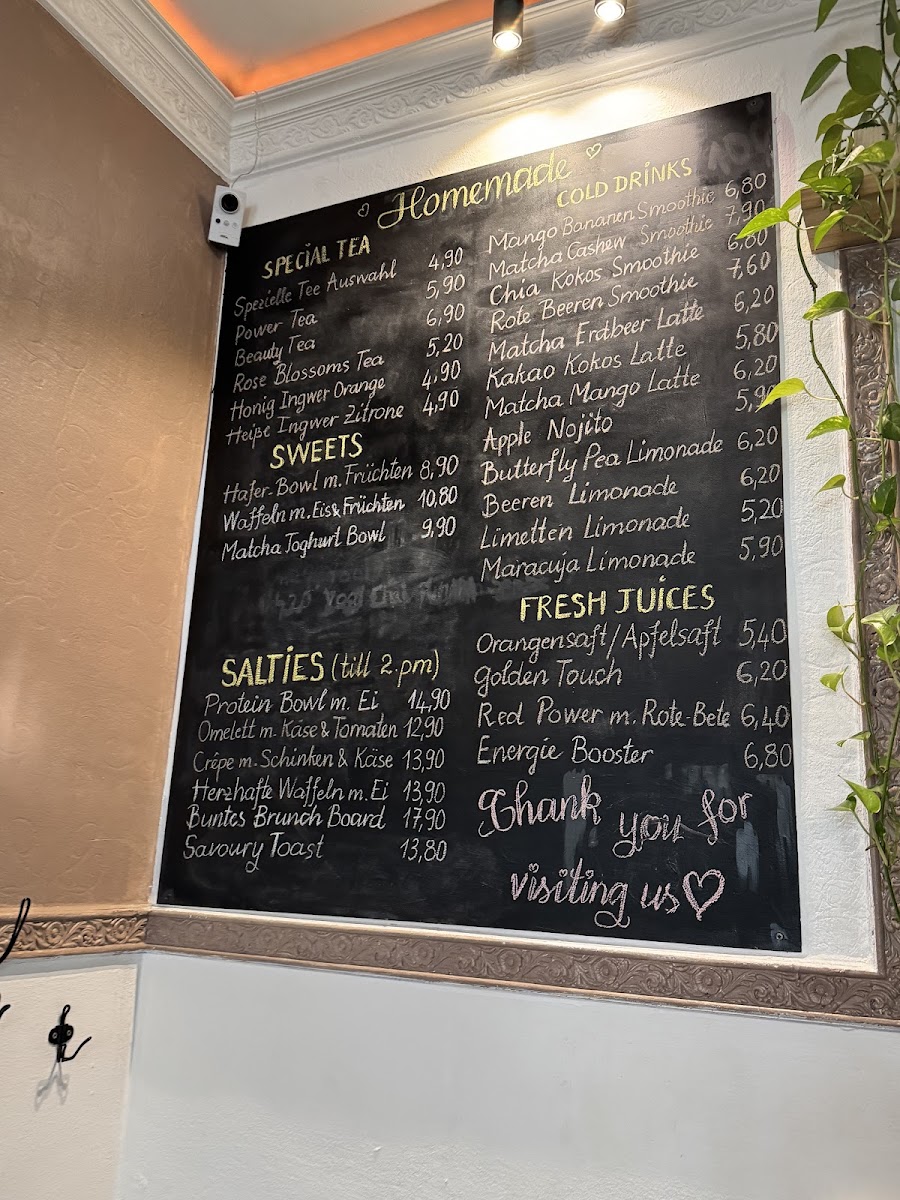 Homemade
SPECIAL TEA
Spezielle Tee Auswahl 4,90
Power Tea 5,90
Beauty Tea 6,90
Rose Blossoms Tea 5,20
Honig Ingwer Orange 4,90
Heiße Ingwer Zitrone 4,90
SWEETS
Hafer-Bowl m. Früchten 8,90
Waffeln m. Eis & Früchten 10,80
Matcha Joghurt Bowl 9,90
SALTIES (till 2.pm)
Protein Bowl m. Ei 14,90
Omelett m. Käse & Tomaten 12,90
Crêpe m. Schinken & Käse 13,90
Herzhafte Waffeln m. Ei 13,90
Buntes Brunch Board 17,90
Savoury Toast 13,80
COLD DRINKS
Mango Bananen Smoothie 6,80
Matcha Cashew Smoothie 7,90
Chia Kokos Smoothie 6,80
Rote Beeren Smoothie 7,60
Matcha Erdbeer Latte 6,20
Kakao Kokos Latte 5,80
Matcha Mango Latte 6,20
Apple Nojito 5,90
Butterfly Pea Limonade 6,20
Beeren Limonade 6,20
Limetten Limonade 5,20
Maracuja Limonade 5,90
FRESH JUICES
Orangensaft/Apfelsaft 5,40
Golden Touch 6,20
Red Power m. Rote-Bete 6,40
Energie Booster 6,80
Thank you for
visiting us